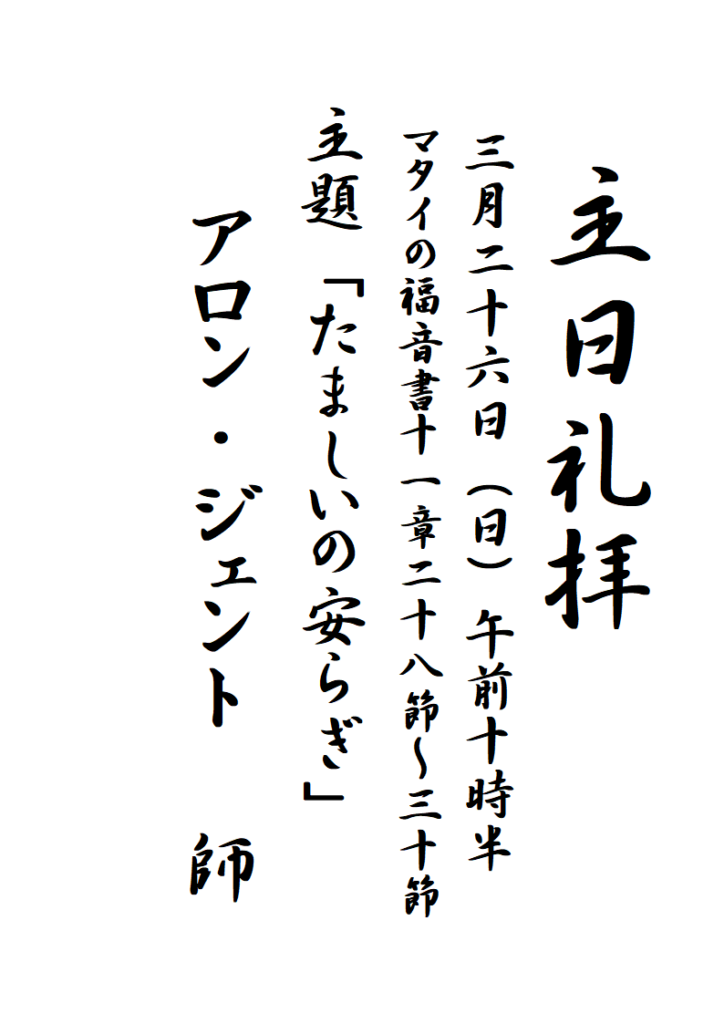 主日礼拝
三月二十六日（日） 午前十時半
マタイの福音書十一章二十八節～三十節
主題 「たましいの安らぎ」
アロン・ジェント 師